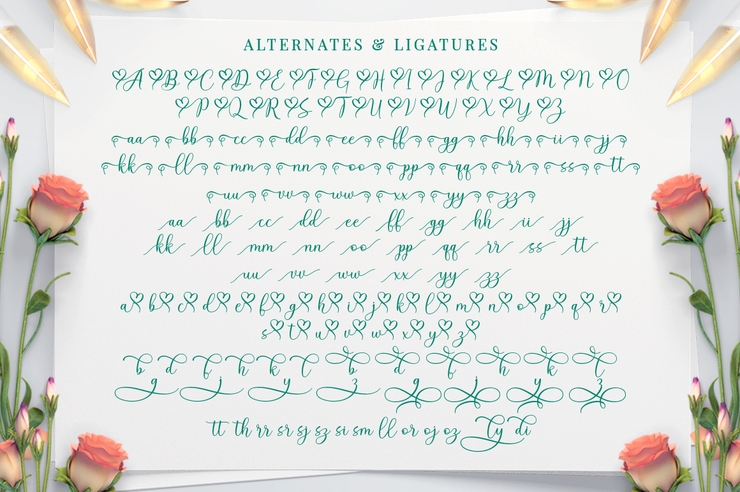 ALTERNATES & LIGATURES
A B C D E F G H I J K L M N O
P Q R S T U V W X Y Z
aa bb cc dd ee ff gg hh ii jj
kk ll mm nn oo pp qq rr ss tt
uu vv ww xx yy zz
aa bb cc dd ee ff gg hh ii jj
kk ll mm nn oo pp qq rr ss tt
uu vv ww xx yy zz
a b c d e f g h i j k l m n o p q r
s t u v w x y z
b d f h k l b d f h k l
g j y z g j y z
tt th rr sr sj sz si sm ll or oj oz ly di